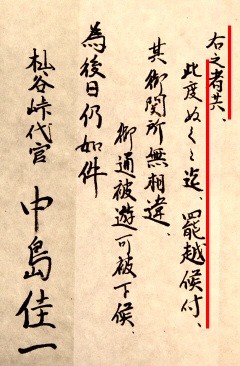 右之者共、
此度ぬくゝ迄、罷越候付、
其御関所無相違、
御通被遊可被下候、
為後日仍如件
杣谷峠代官 中島佳一